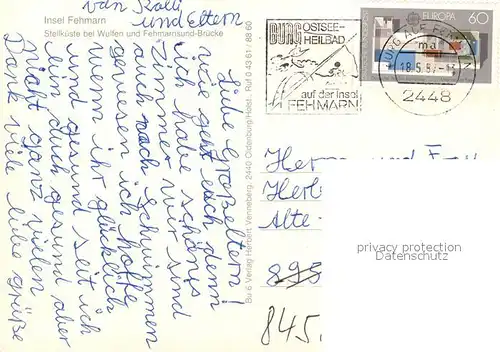 Insel Fehmarn
Steilküste bei Wulfen und Fehmarnsund-Brücke
Liebe Großeltern!
wie geht euch denn
ich habe schöns
Zimmer wir sind
auch nach Schwimmen
gewesen ich hoffe
wenn ihr glücklich
und gesund seit ich
bin auch gesund aber
nicht ganz vielen
Dank viele liebe grüße
von Kalli
und Eltern
Bu 6 Verlag Herbert Venneberg, 2440 Oldenburg/Holst. Ruf 0 43 61 / 88 60
BURG
OSTSEE-
HEILBAD
auf der Insel
FEHMARN
EUROPA 60
18.5.87
2448
Herrn und
Alte
895
845
privacy protection
Datenschutz